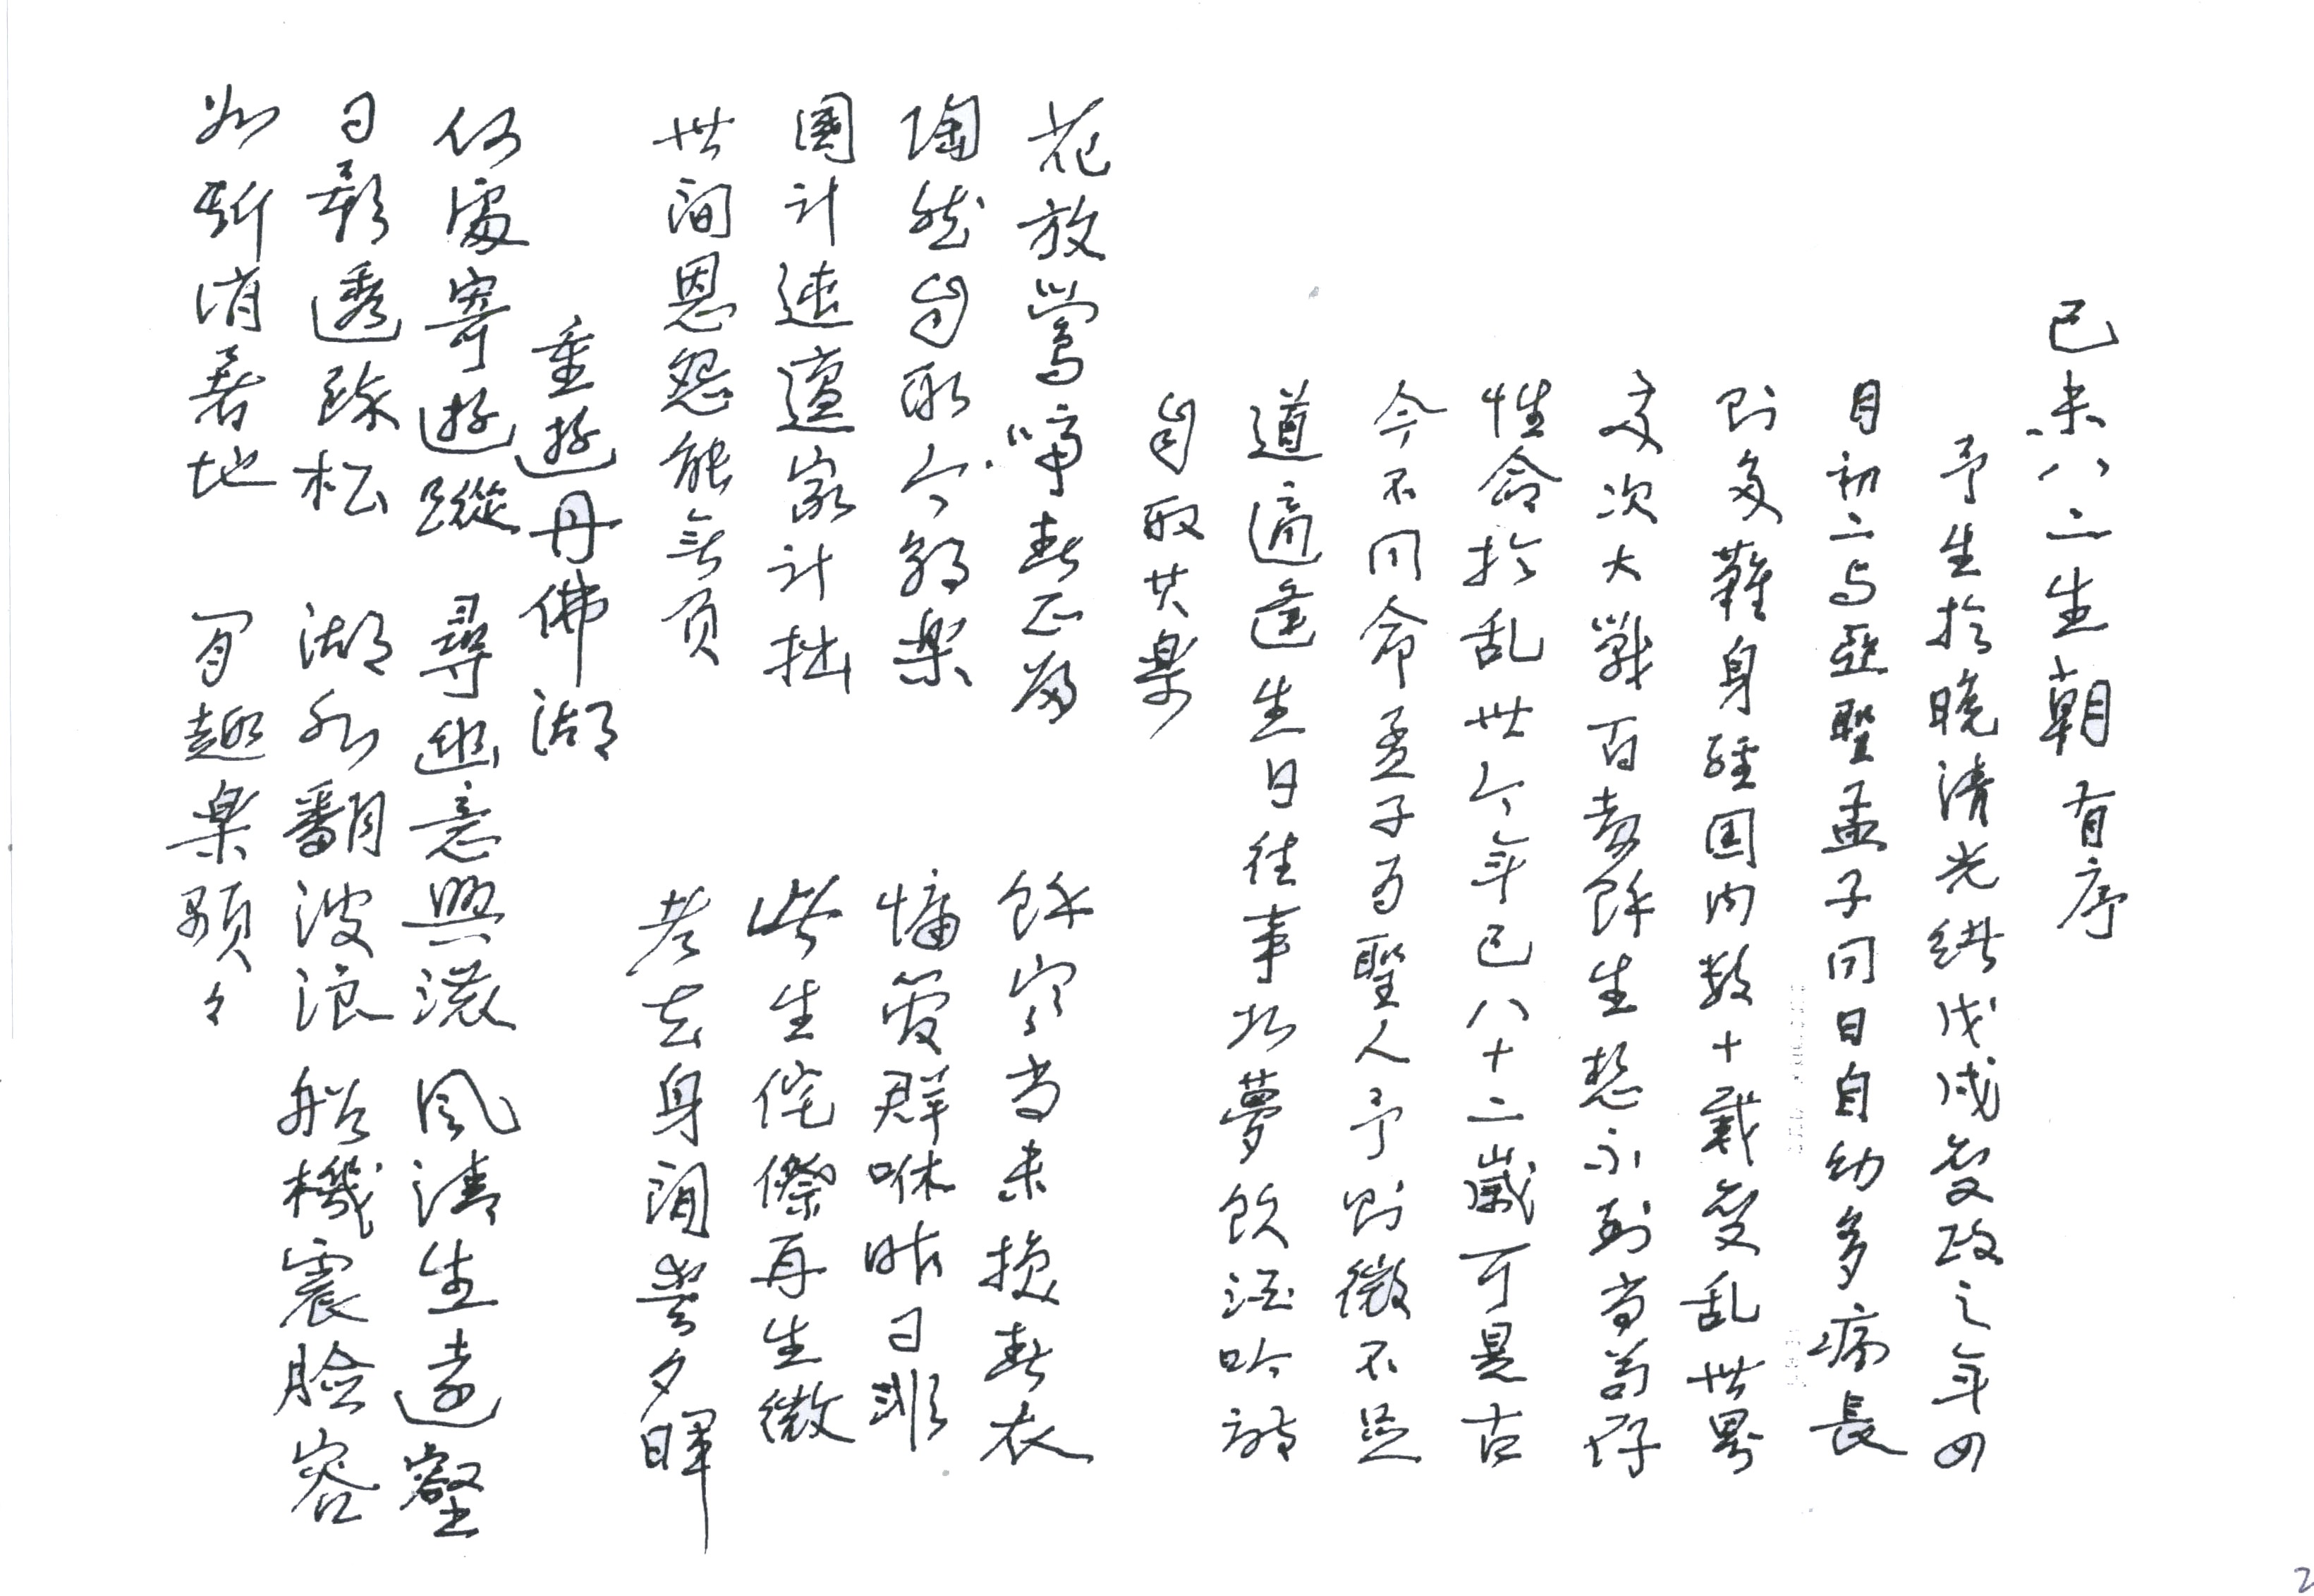 己未八二生朝 有序
予生於晚清光緒戊戌變政之年四
月初二与亞聖孟子同日自幼多病長
則多難身經国内数十載變乱世界
交次大戰百劫餘生愁不到尚苟存
性命於乱世今年已八十二歲可是古
今不同命孟子为聖人予則微不足
道適逢生日往事如夢飲酒吟詩
自取其樂
花放鶯啼春正 餘寒尚未換春衣
陶然自取今朝樂 慵管群咻昨日非
國計速邅家計拙 此生侘傺再生微
世間恩怨能無負 老去身閒夕暉
重遊丹佛湖
何處寄遊蹤 尋幽意興濃 風清生遠壑
日影透疎松 湖水翻波浪 船機震臉容
如斯消暑地 有趣樂顒々
2